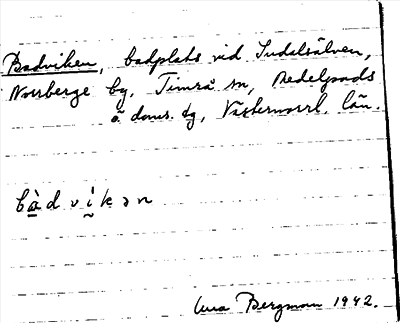 Badviken, badplats vid Indalsälven,
Norrberge by, Timrå sn, Medelpads
ö doms. tg, Västernorrl. län.
bàdvikən
Bergman 1942.